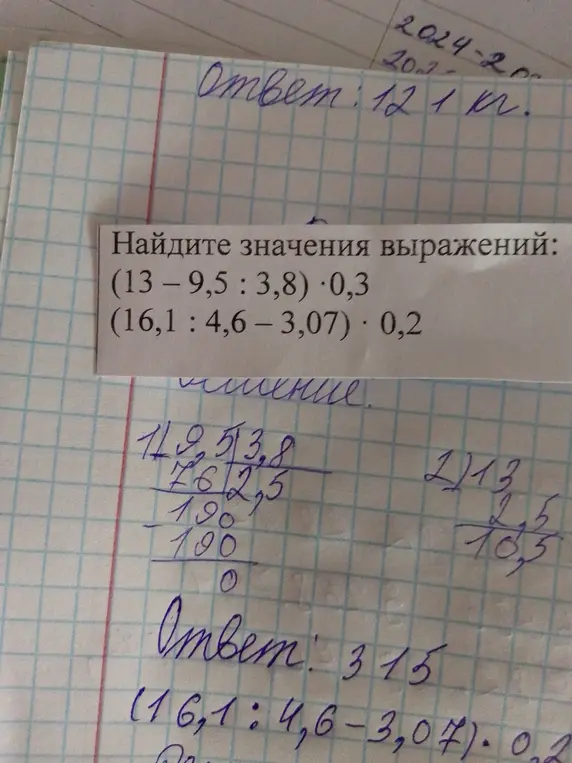 2024-20
202-
Ответ: 121 кг.
Найдите значения выражений:
(13 – 9,5 : 3,8) ·0,3
(16,1 : 4,6 – 3,07) · 0,2
1) 9,5 3,8
76 2,5
190
190
0
2) 13
2,5
10,5
Ответ: 315
(16,1 : 4,6 - 3,07) · 0,2